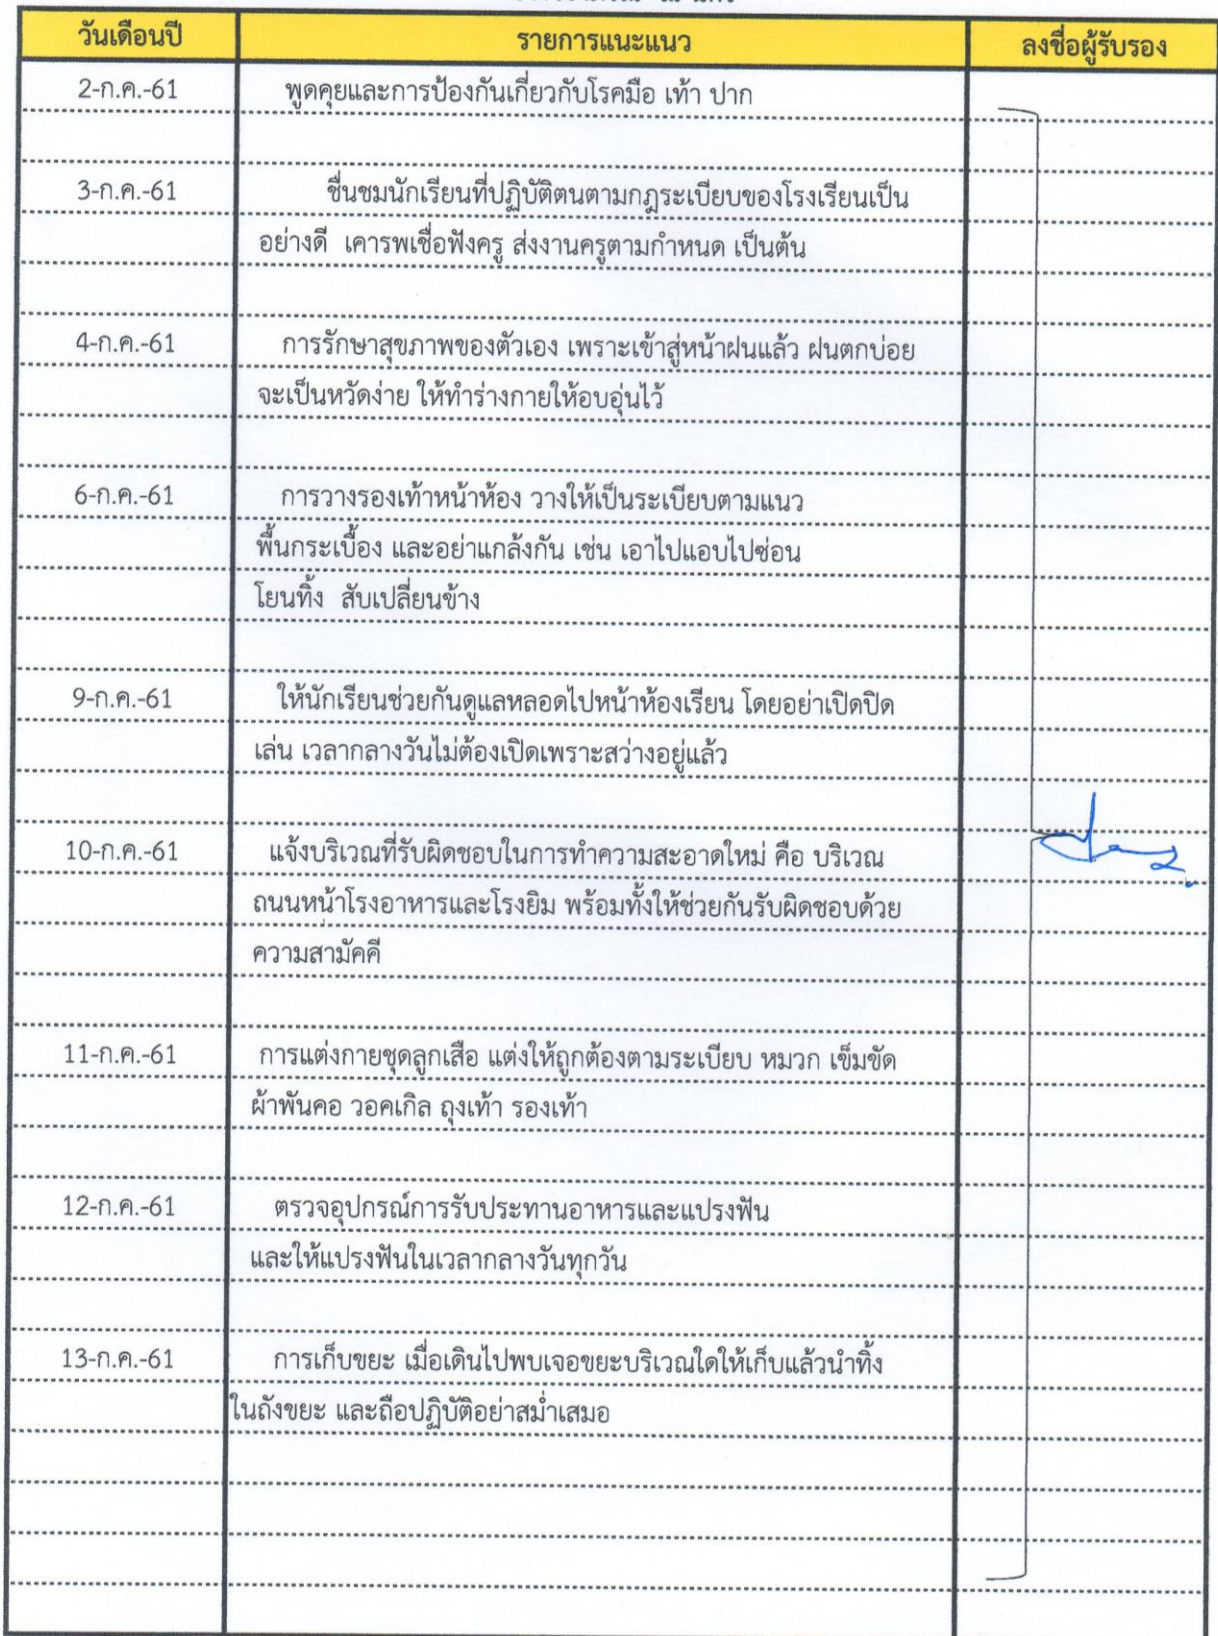 วันเดือนปี รายการแนะแนว ลงชื่อผู้รับรอง
2-ก.ค.-61 พูดคุยและการป้องกันเกี่ยวกับโรคมือ เท้า ปาก
3-ก.ค.-61 ชื่นชมนักเรียนที่ปฏิบัติตนตามกฎระเบียบของโรงเรียนเป็น
อย่างดี เคารพเชื่อฟังครู ส่งงานครูตามกำหนด เป็นต้น
4-ก.ค.-61 การรักษาสุขภาพของตัวเอง เพราะเข้าสู่หน้าฝนแล้ว ฝนตกบ่อย
จะเป็นหวัดง่าย ให้ทำร่างกายให้อบอุ่นไว้
6-ก.ค.-61 การวางรองเท้าหน้าห้อง วางให้เป็นระเบียบตามแนว
พื้นกระเบื้อง และอย่าแกล้งกัน เช่น เอาไปแอบไปซ่อน
โยนทิ้ง สับเปลี่ยนข้าง
9-ก.ค.-61 ให้นักเรียนช่วยกันดูแลหลอดไปหน้าห้องเรียน โดยอย่าเปิดปิด
เล่น เวลากลางวันไม่ต้องเปิดเพราะสว่างอยู่แล้ว
10-ก.ค.-61 แจ้งบริเวณที่รับผิดชอบในการทำความสะอาดใหม่ คือ บริเวณ
ถนนหน้าโรงอาหารและโรงยิม พร้อมทั้งให้ช่วยกันรับผิดชอบด้วย
ความสามัคคี
11-ก.ค.-61 การแต่งกายชุดลูกเสือ แต่งให้ถูกต้องตามระเบียบ หมวก เข็มขัด
ผ้าพันคอ วอคเกิล ถุงเท้า รองเท้า
12-ก.ค.-61 ตรวจอุปกรณ์การรับประทานอาหารและแปรงฟัน
และให้แปรงฟันในเวลากลางวันทุกวัน
13-ก.ค.-61 การเก็บขยะ เมื่อเดินไปพบเจอขยะบริเวณใดให้เก็บแล้วนำทิ้ง
ในถังขยะ และถือปฏิบัติอย่าสม่ำเสมอ